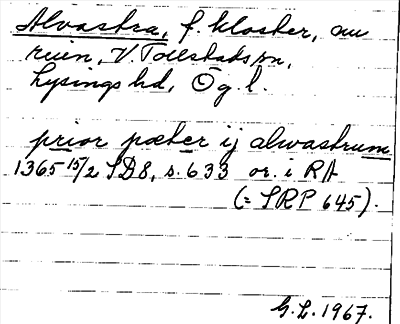 Alvastra, f. kloster, nu
ruin, V. Tollstads sn,
Lysings hd, Ög. l.
prior pæter ij alwastrum
1365 15/2 SD 8, s. 633 or. i RA
(= SRP 645).
G. L. 1967.